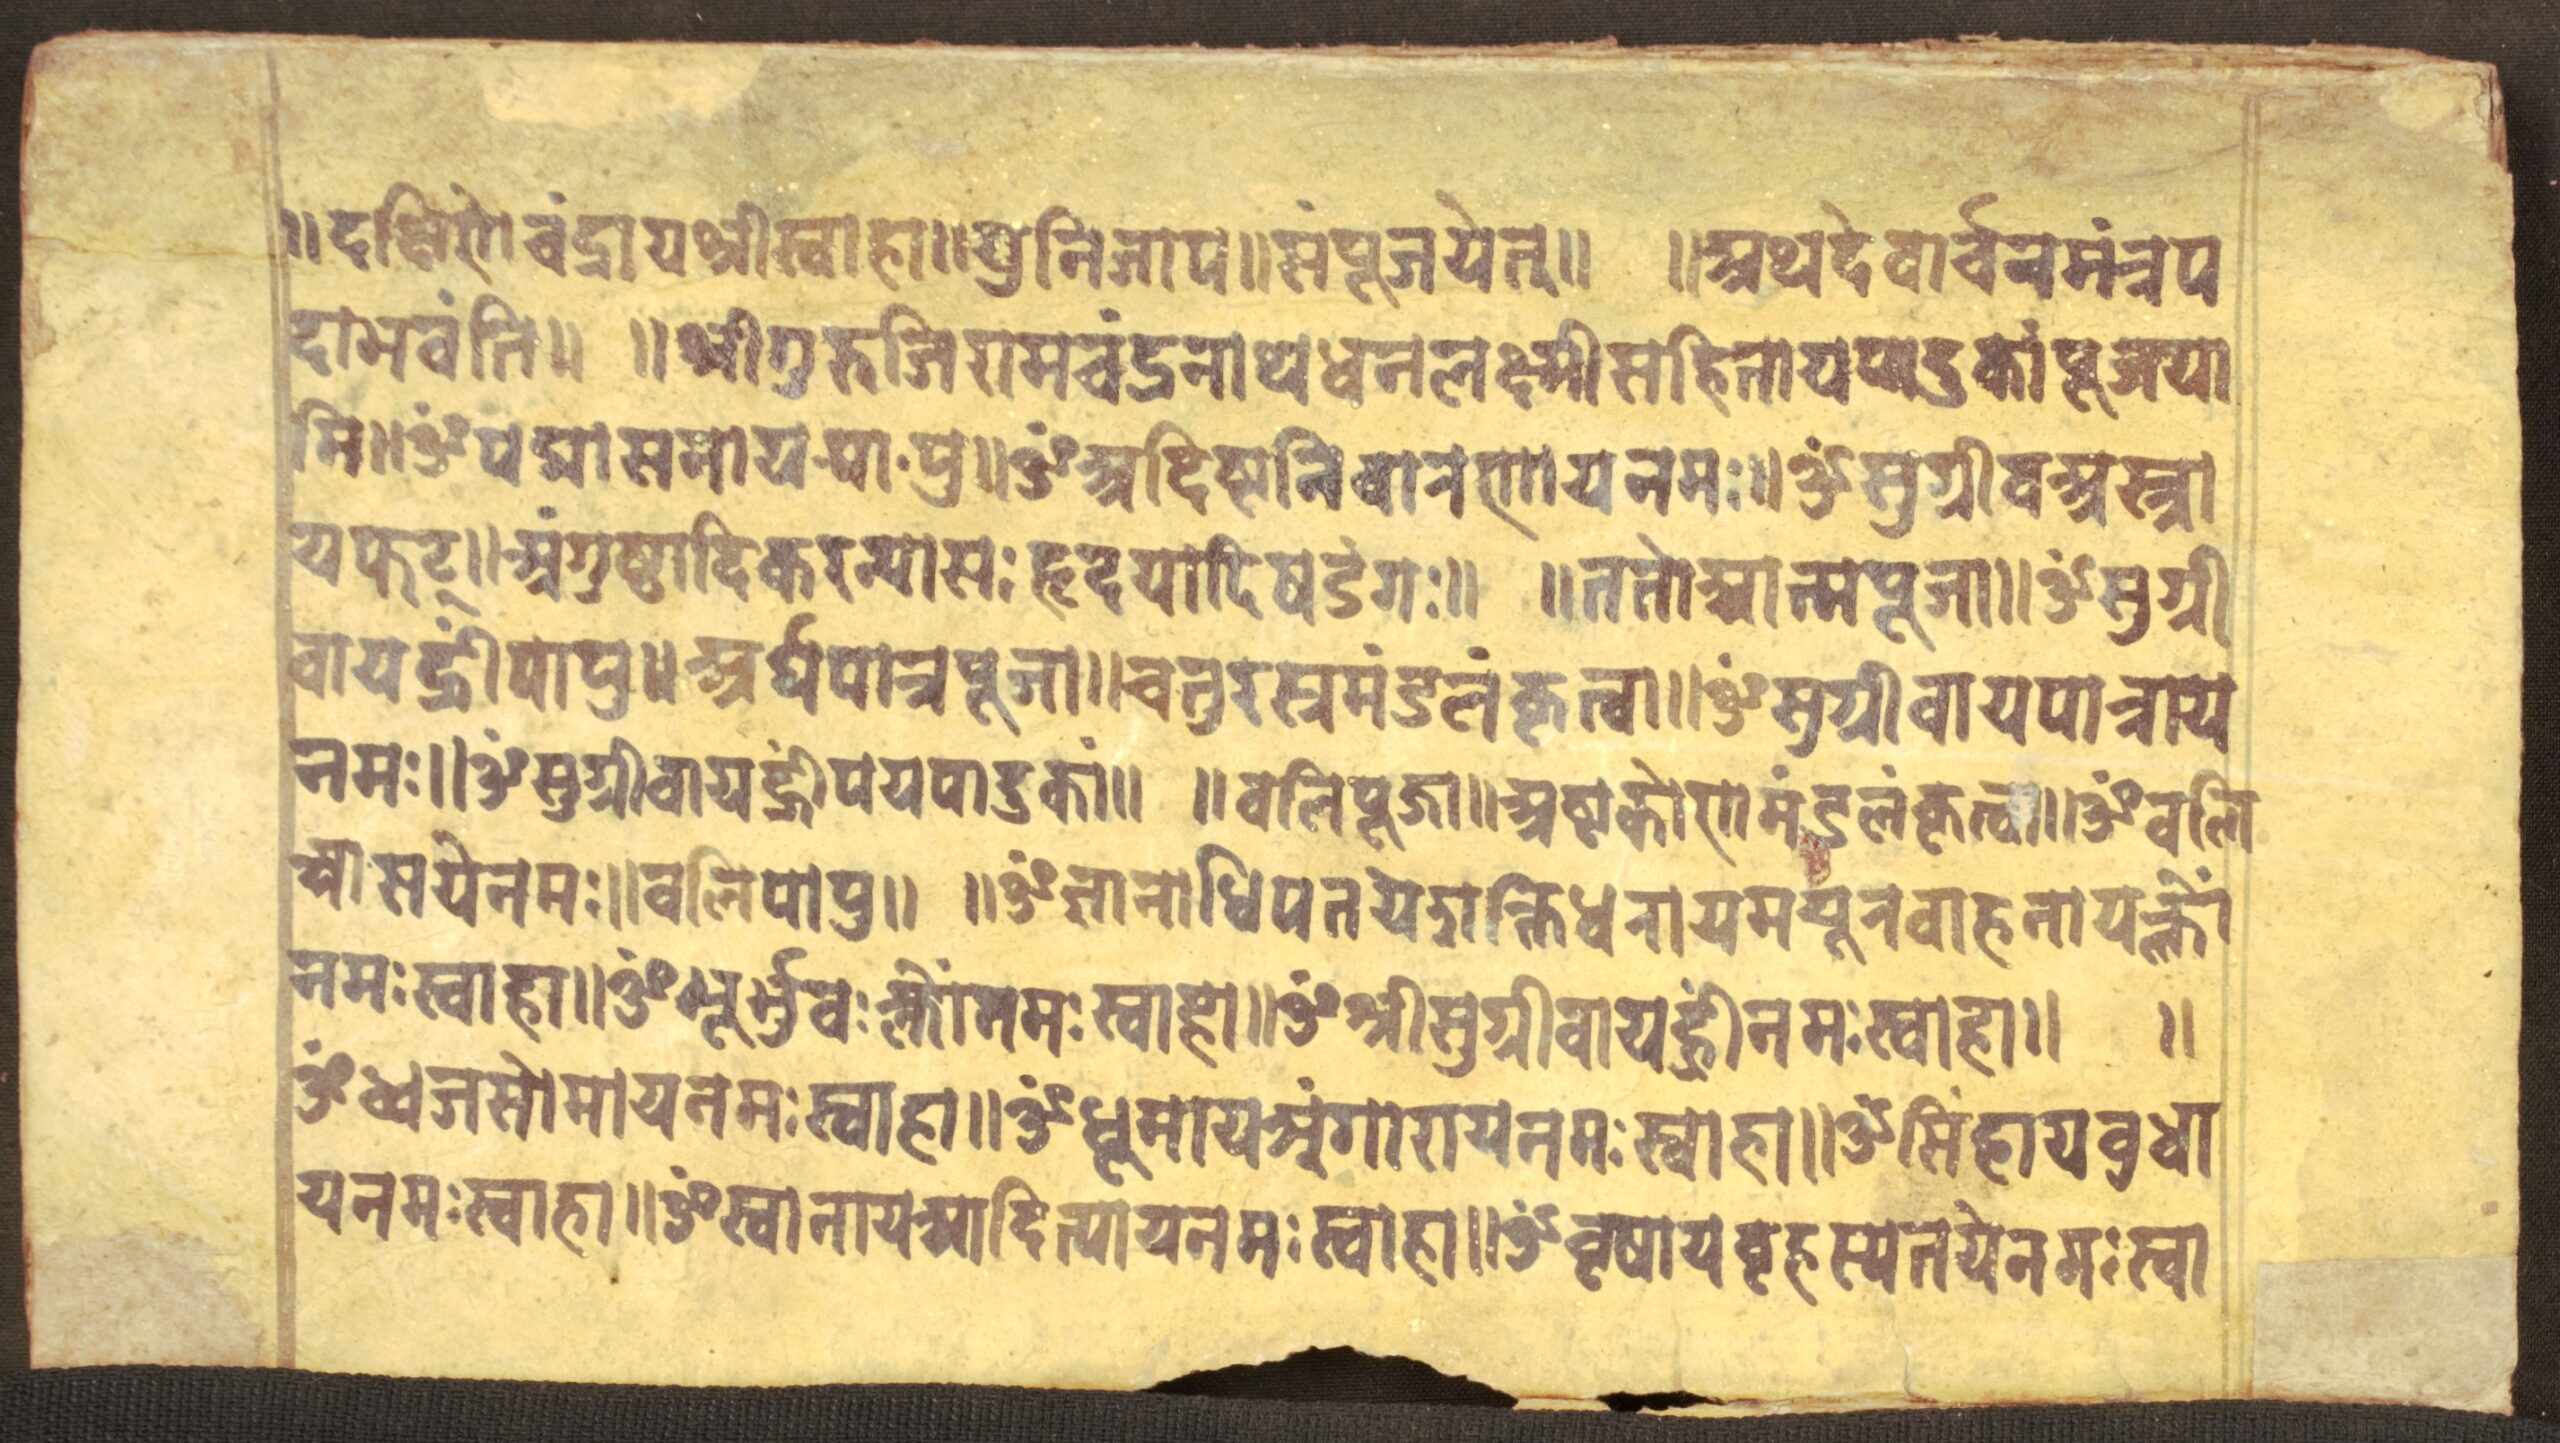 ॥दक्षिणेचंद्रायश्रीस्वाहा॥थुनिजाप॥संपूजयेत्॥ ॥अथदेवार्चनमंत्रप
दाभवंति॥ ॥श्रीगुरुजिरामचंद्रनाथधनलक्ष्मीसहितायपादुकांपूजया
मि॥ॐपद्मासनायपा·पु॥ॐअदिष्टनिवारणायनमः॥ॐसुग्रीवअस्त्रा
यफट्॥अंगुष्ठादिकरन्यासःहृदयादिषडंगः॥ ॥ततोआत्मपूजा॥ॐसुग्री
वायह्रींपापु॥अर्घपात्रपूजा॥चतुरस्रमंडलंकृत्वा॥ॐसुग्रीवायपात्राय
नमः॥ॐसुग्रीवायह्रींपयपादुकां॥ ॥वलिपूजा॥अष्टकोणमंडलंकृत्वा॥ॐवलि
आसयेनमः॥वलिपापु॥ ॥ॐज्ञानाधिपतयेशक्तिधरायमयूरवाहनाय
नमःस्वाहा॥ॐभूर्भुवःनमःस्वाहा॥ॐश्रीसुग्रीवायह्रींनमःस्वाहा॥ ॥
ॐध्वजसोमायनमःस्वाहा॥ॐधूमायअंगारायनमःस्वाहा॥ॐसिंहायवुधा
यनमःस्वाहा॥ॐस्वानायआदित्यायनमःस्वाहा॥ॐवृषायवृहस्पतयेनमःस्वा